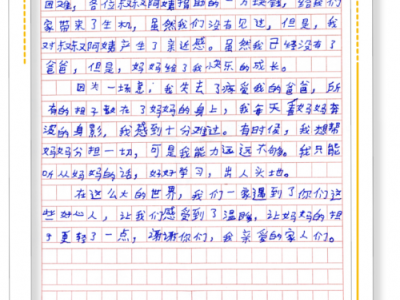 困难，各位叔叔阿姨捐助的一方块钱，给我们
家带来了生机，虽然我们没有见过，但是，我
对叔叔阿姨产生了亲近感。虽然我已经没有了
爸爸，但是，妈妈给了我快乐的成长。
因为一场患，我失去了疼爱我的爸爸，所
有的担子都在了妈妈的身上，我每天看妈妈奔
波的身影，我感到十分难过。有时候，我想帮
妈妈分担一切，可是我能力远远不够。我只能
听从妈妈的话，好好学习，出人头地。
在这么大的世界，我们一家遇到了你们这
些好心人，让我们感受到了温暖，让妈妈的担
子更轻了一点，谢谢你们，我亲爱的家人们。